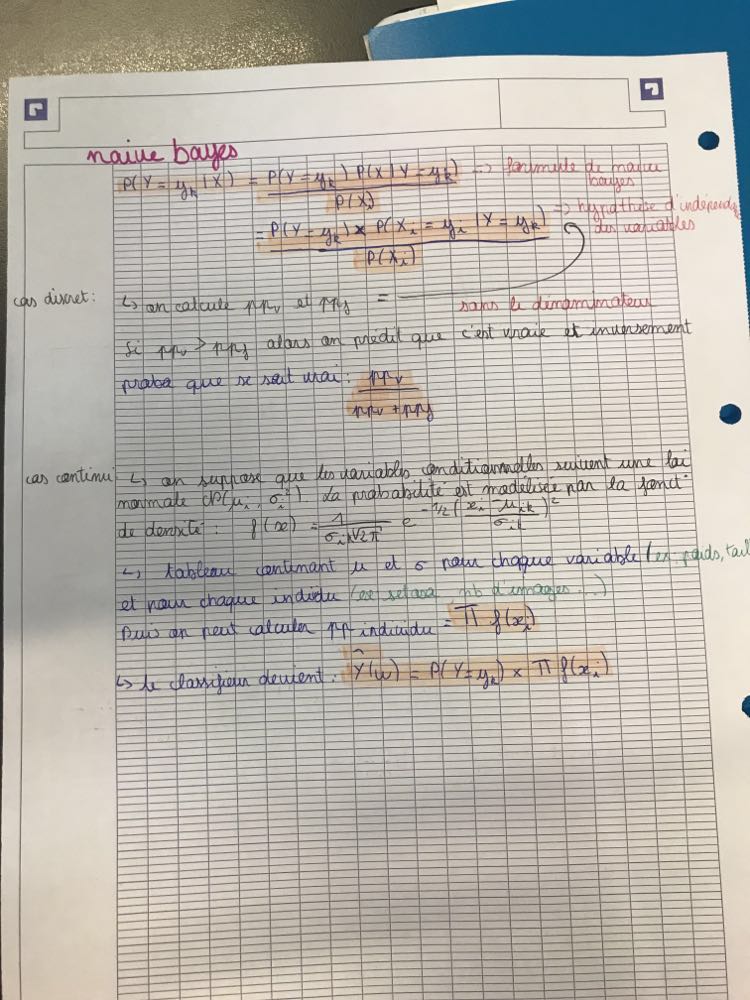 naive bayes
P(Y = y_k | X) = P(Y = y_k) P(X | Y = y_k) / P(X) => formule de naive bayes
= P(Y = y_k) × P(X_i = y_i | Y = y_k) / P(X_i) => hypothèse d'indépendas des variables
cas discret: ↳ on calcule pp_v et pp_f = sans le dénominateur
Si pp_v > pp_f alors on prédit que c'est vraie et inversement
proba que se soit vrai : pp_v / (pp_v + pp_f)
cas continu ↳ on suppose que les variables conditionnelles suivent une loi
normale (μ_i, σ_i²). La probabilité est modélisée par la fonct°
de densité : f(x) = 1 / (σ_ik √2π) e^(-1/2 ((x_i - μ_ik) / σ_ik)²)
↳ tableau contenant μ et σ pour chaque variable (ex: poids, tail
et pour chaque individu (ex setosa pb d'images...)
Puis on peut calculer pp individu = Π f(x_i)
↳ le classifieur devient : Ŷ(w) = P(Y = y_k) × Π f(x_i)